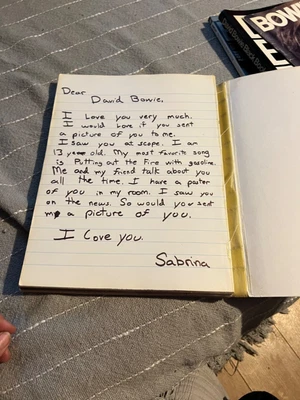 BOW
Dear
David Bowie.
I Love you very much.
I would Love if you sent
a picture of you to me.
I saw you at scope. I am
13 year old. My most favorite song
is Putting out the Fire with gasoline.
Me and my friend talk about you
all the time. I have a poster
of you in my room. I saw you
on the news. So would you sent
me a picture of you.
I Love you.
Sabrina